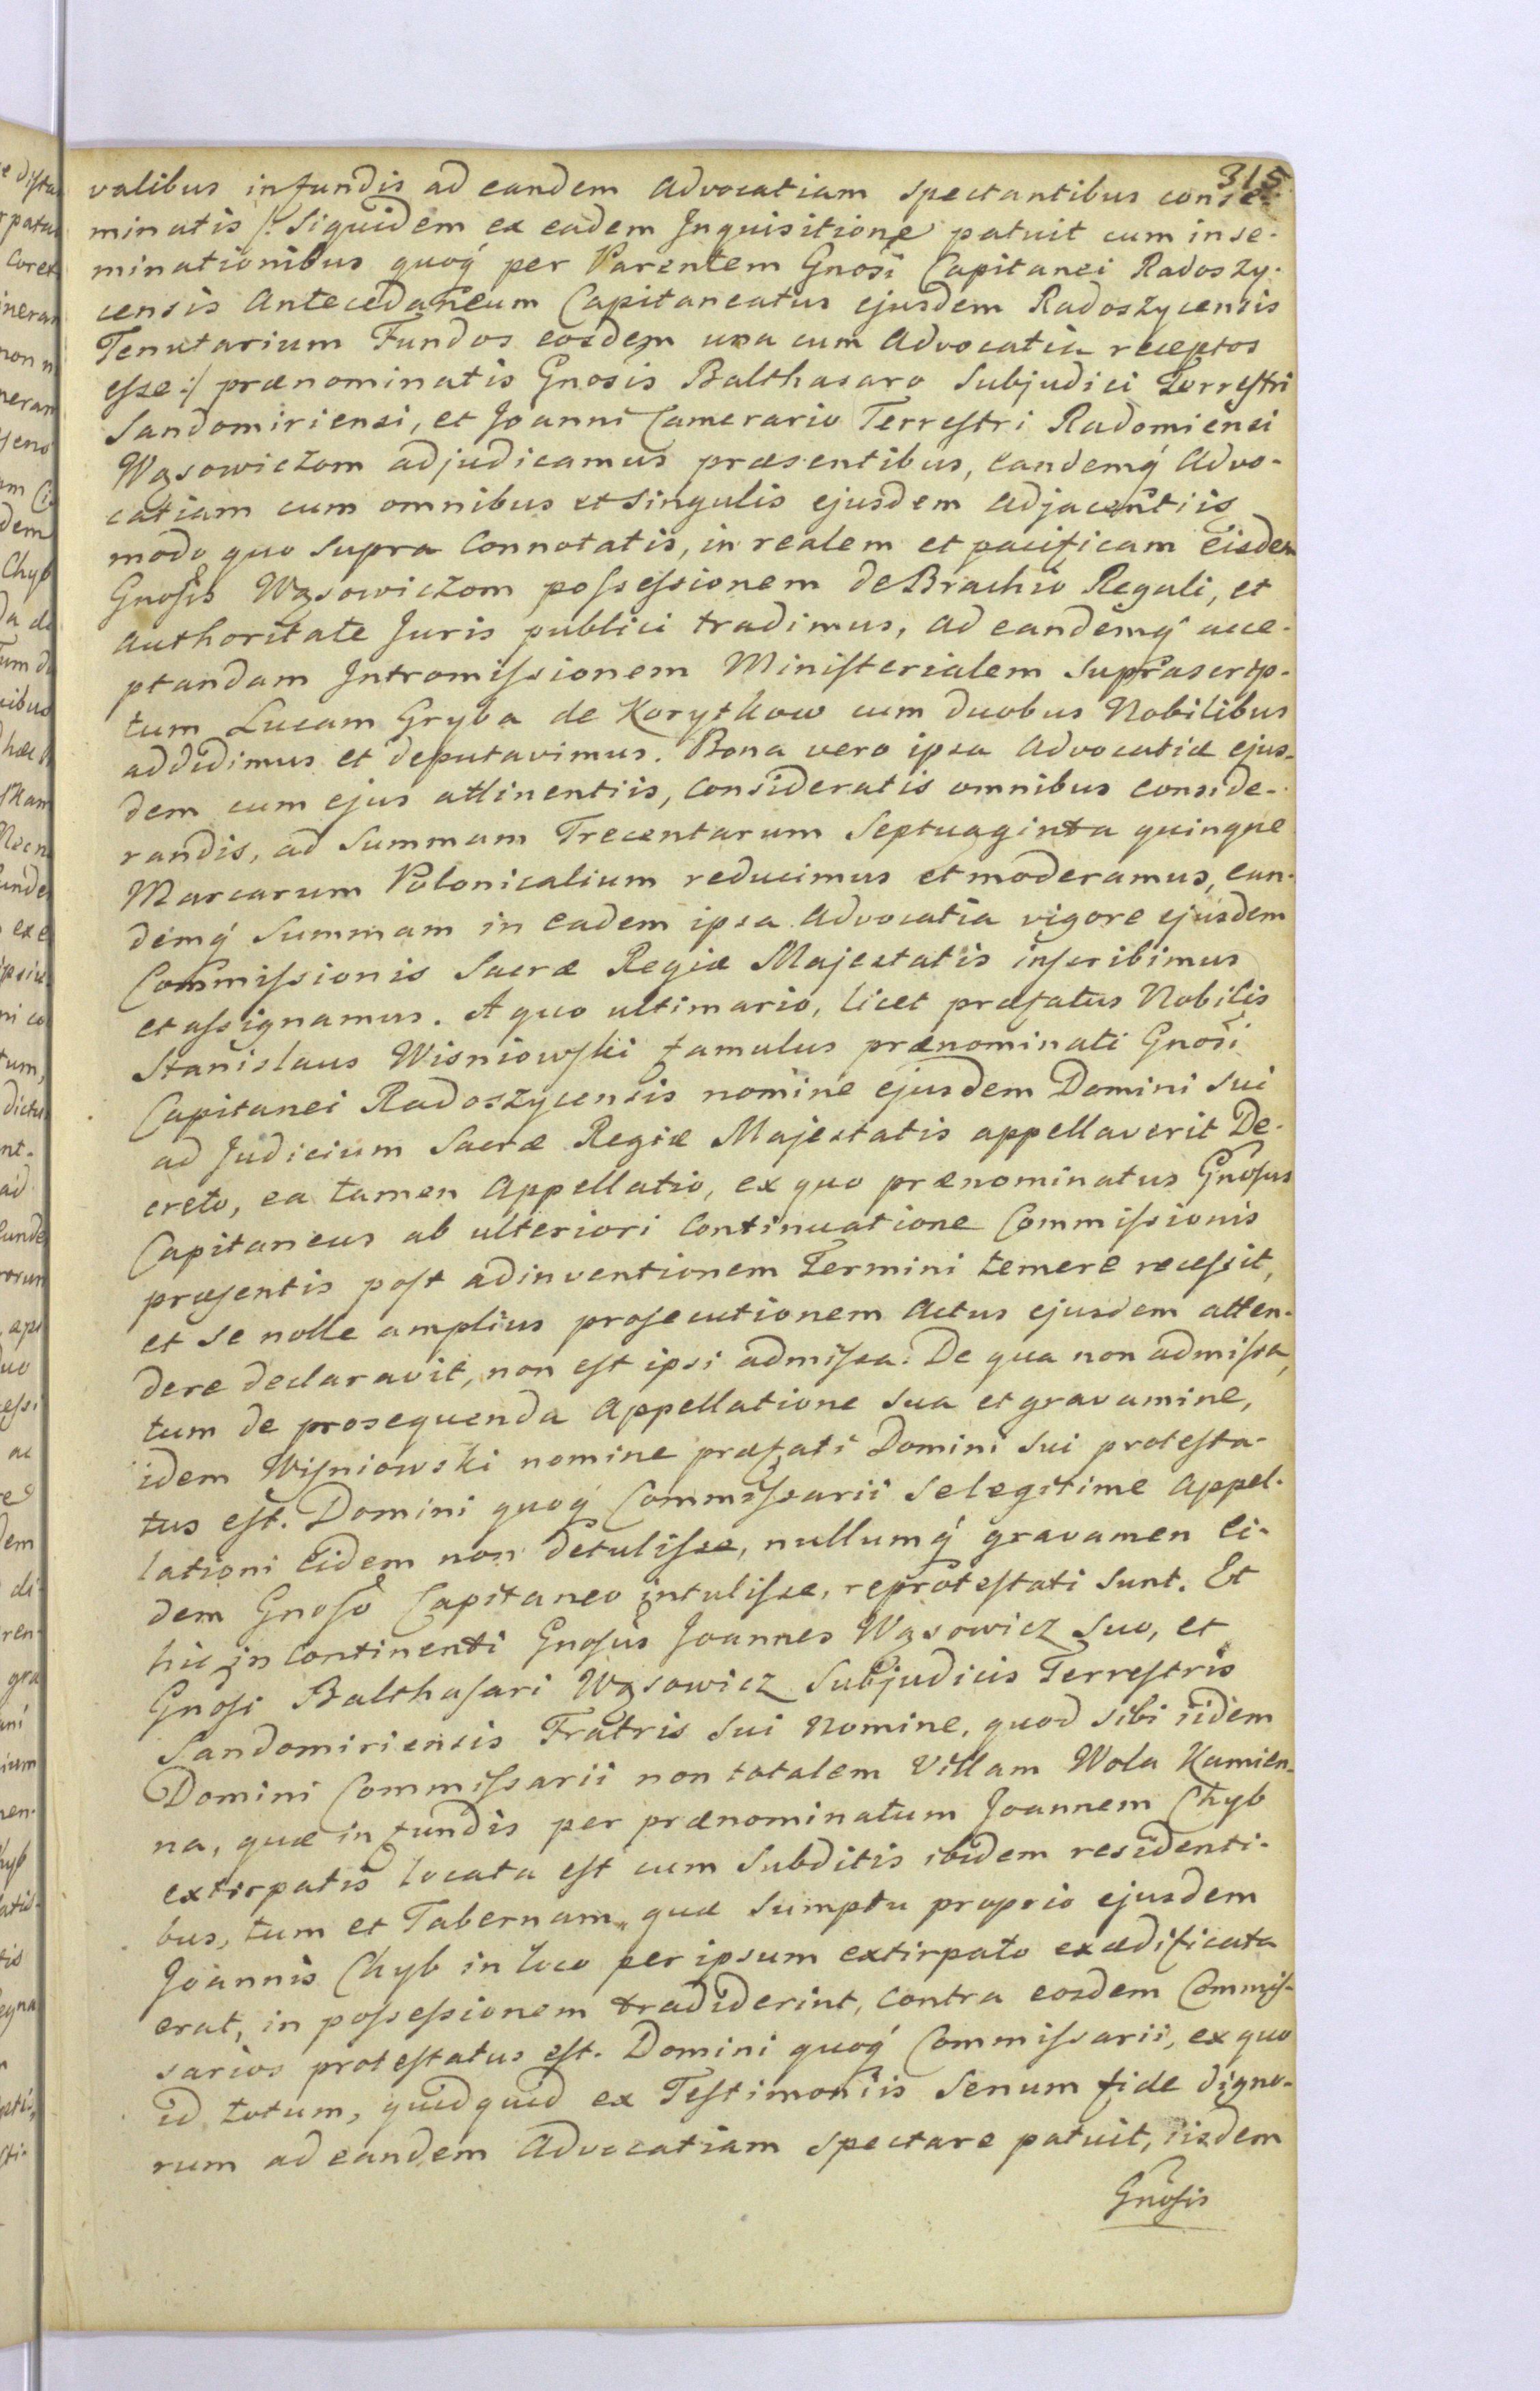 315
valibus in fundis ad eandem Advocatiam spectantibus conse-
minatis /: Siquidem ex eadem Inquisitione patuit cum inse-
minationibus quoq́ per Parentem Gnosi Capitanei Radoszy-
censis Antecedaneum Capitaneatus ejusdem Radoszycensis
Tenutarium Fundos eosdem una cum Advocatia receptos
esse :/ prænominatis Gnosis Balthasaro Subjudici Terrestri
Sandomiriensi, et Joanni Camerario Terrestri Radomiensi
Wąsowiczom adjudicamus præsentibus, eandemq́ Advo-
catiam cum omnibus et singulis ejusdem adjacentiis
modo quo supra connotatis, in realem et pacificam Eisdem
Gnosis Wąsowiczom possessionem de Brachio Regali, et
authoritate Juris publici tradimus, ad eandemq́ acce-
ptandam Intromissionem Ministerialem suprascrip-
tum Lucam Gryba de Korytkow cum duobus Nobilibus
addidimus et deputavimus. Bona vero ipsa Advocatiæ ejus-
dem cum ejus attinentiis, consideratis omnibus conside-
randis, ad summam Trecentarum Septuaginta quinque
Marcarum Polonicalium reducimus et moderamus, ean-
demq́ Summam in eadem ipsa Advocatia vigore ejusdem
Commissionis Sacræ Regiæ Majestatis inscribimus
et assignamus. A quo ultimario, licet præfatus Nobilis
Stanislaus Wisniowski famulus prænominati Gnosi
Capitanei Radoszycensis nomine ejusdem Domini sui
ad Judicium Sacræ Regiæ Majestatis appellaverit De-
creto, ea tamen Appellatio, ex quo prænominatus Gnosus
Capitaneus ab ulteriori continuatione Commissionis
præsentis post adinventionem Termini temere recessit,
et se nolle amplius prosecutionem Actus ejusdem atten-
dere declaravit, non est ipsi admissa. De qua non admissa,
tum de prosequenda Appellatione sua et gravamine,
idem Wisniowski nomine præfati Domini sui protesta-
tus est. Domini quoq́ Commissarii se legitime Appel-
lationi Eidem non detulisse, nullumq́ gravamen Ei-
dem Gnoso Capitaneo intulisse, reprotestati sunt. Et
hic in continenti Gnosus Joannes Wąsowicz suo, et
Gnosi Balthasari Wąsowicz Subjudicis Terrestris
Sandomiriensis Fratris sui Nomine, quod sibi iidem
Domini Commissarii non totalem Villam Wola Kamien-
na, quæ in fundis per prænominatum Joannem Chyb
extirpatis locata est cum Subditis ibidem residenti-
bus, tum et Tabernam, quæ sumptu proprio ejusdem
Joannis Chyb in loco per ipsum extirpato exædificata
erat, in possessionem tradiderint, contra eosdem Commis-
sarios protestatus est. Domini quoq́ Commissarii, ex quo
id totum, quidquid ex Testimoniis Senum fide digno-
rum ad eandem Advocatiam spectare patuit, iisdem
Gnosis